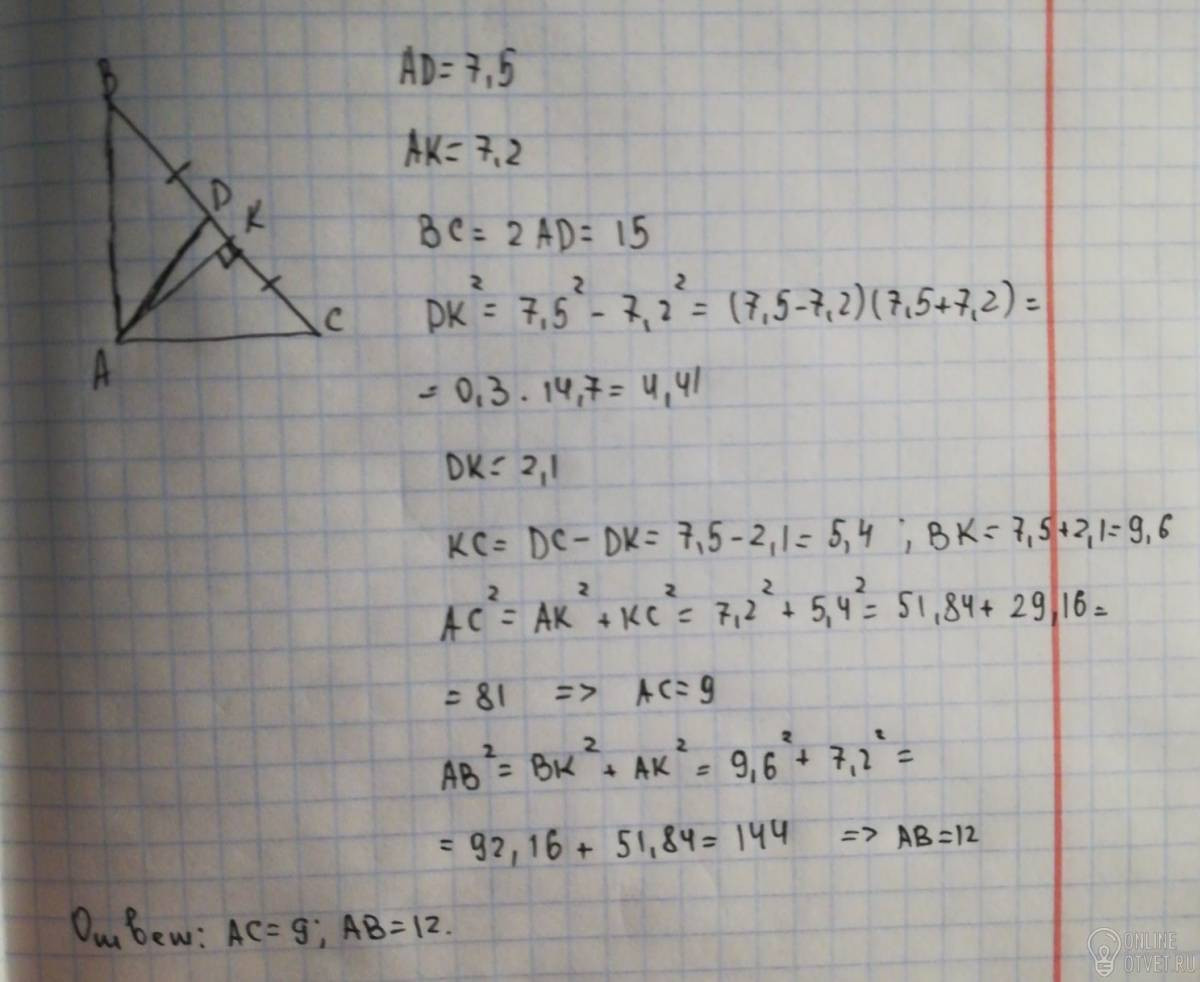 B
D
K
C
A
AD = 7,5
AK = 7,2
BC = 2 AD = 15
DK² = 7,5² - 7,2² = (7,5-7,2)(7,5+7,2) =
= 0,3 · 14,7 = 4,41
DK = 2,1
KC = DC - DK = 7,5 - 2,1 = 5,4 ; BK = 7,5 + 2,1 = 9,6
AC² = AK² + KC² = 7,2² + 5,4² = 51,84 + 29,16 =
= 81 => AC = 9
AB² = BK² + AK² = 9,6² + 7,2² =
= 92,16 + 51,84 = 144 => AB = 12
Ответ: AC = 9; AB = 12.
ONLINE
OTVET.RU